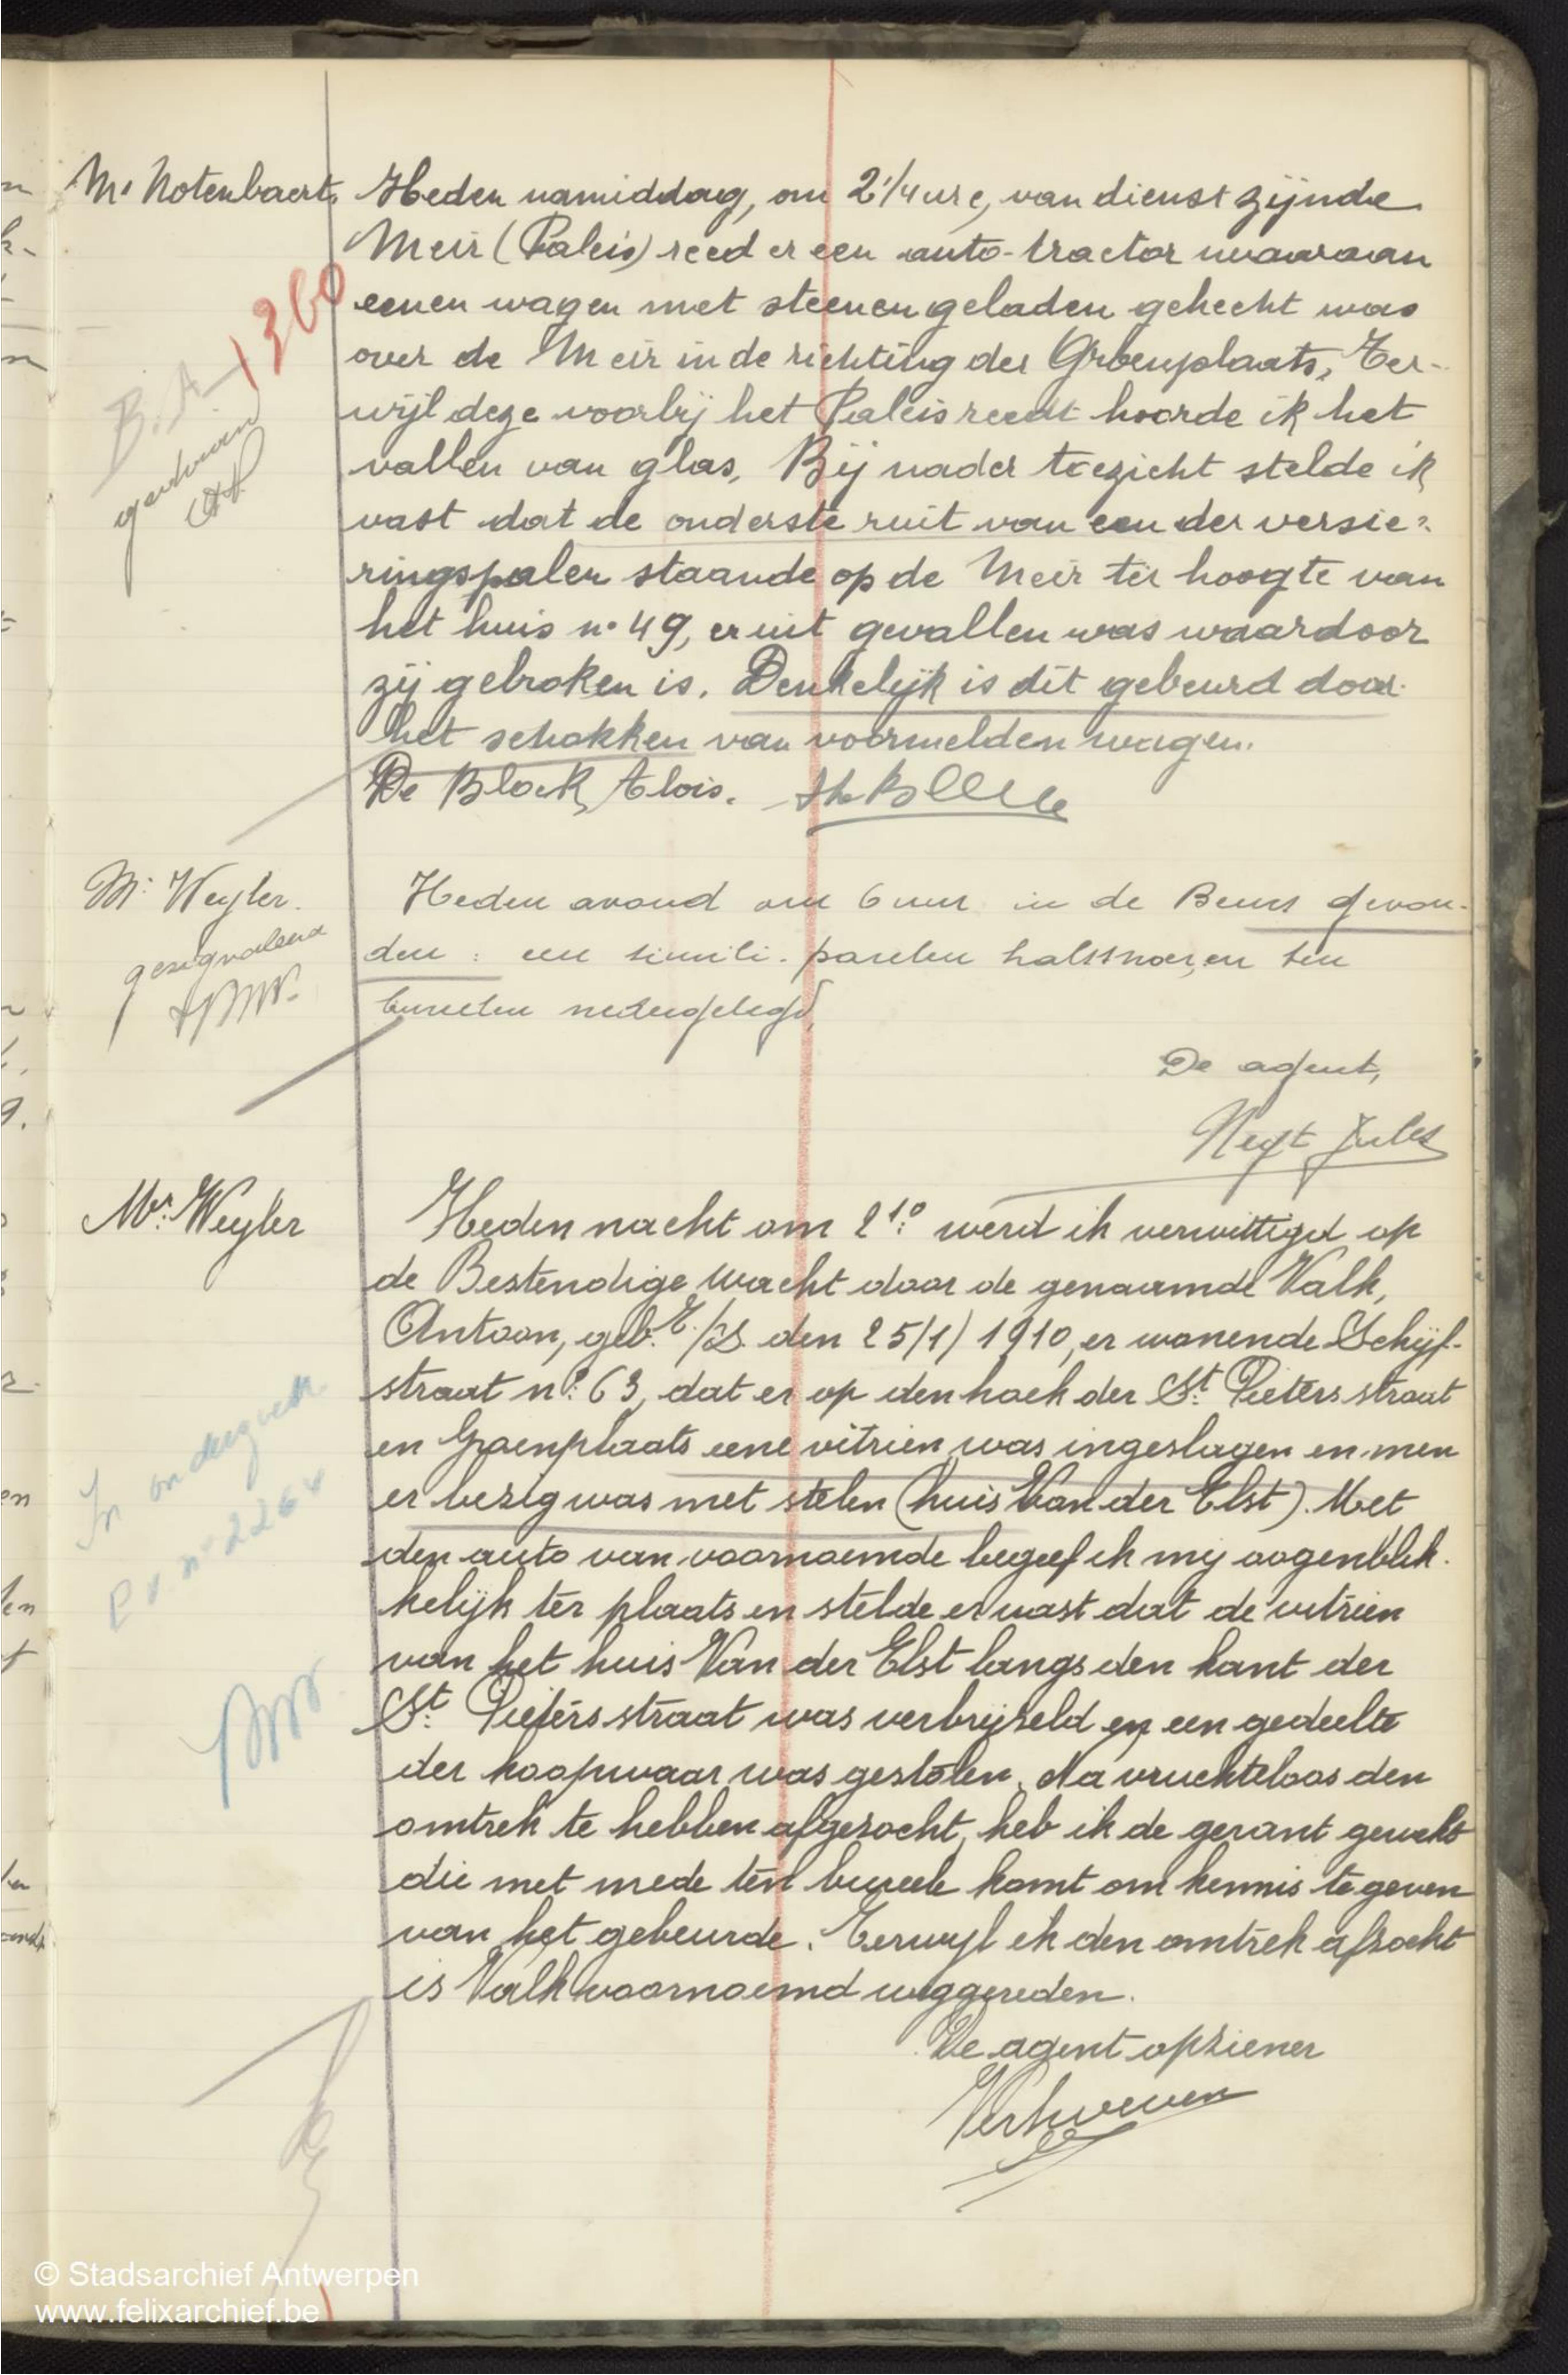 Mr Notenbaert
Heden namiddag, om 2 1/4 ure, van dienst zijnde
Meir (Paleis) reed er een auto-tractor waaraan
eenen wagen met steenen geladen gehecht was
over de Meir in de richting der Groenplaats, Ter-
wijl deze voorbij het Paleis reedt hoorde ik het
vallen van glas. Bij nader toezicht stelde ik
vast dat de onderste ruit van een der versie-
ringspalen staande op de Meir ter hoogte van
het huis n° 49, er uit gevallen was waardoor
zij gebroken is. Denkelijk is dit gebeurd door
het schokken van voormelden wagen.
De Block, Alois.
B.A. 1360
Mr Weyler.
gesignaleerd
Heden avond om 6 uur in de Beurs gevon-
den : een simili-parelen halssnoer, en ten
bureelen nedergelegd
De agent,
Neyt Jules
Mr. Weyler
Heden nacht om 2 10 werd ik verwittigd op
de Bestendige Wacht door de genaamde Valk,
Antoon, geb. den 25/1/1910, er wonende Schijf-
straat n° 63, dat er op den hoek der St Pieters straat
en Groenplaats eene vitrien was ingeslagen en men
er bezig was met stelen (huis Van der Elst). Met
den auto van voornoemde begeef ik mij oogenblik-
kelijk ter plaats en stelde er vast dat de vitrien
van het huis Van der Elst langs den kant der
St. Pieters straat was verbrijzeld en een gedeelte
der koopwaar was gestolen. Na vruchteloos den
omtrek te hebben afgezocht, heb ik de gerant gewekt
die met mede ten bureele komt om kennis te geven
van het gebeurde. Terwyl ik den omtrek afzocht
is Valk voornoemd weggereden.
De agent opziener
Verhoeven
In onderzoek
PV n° 2264
© Stadsarchief Antwerpen
www.felixarchief.be